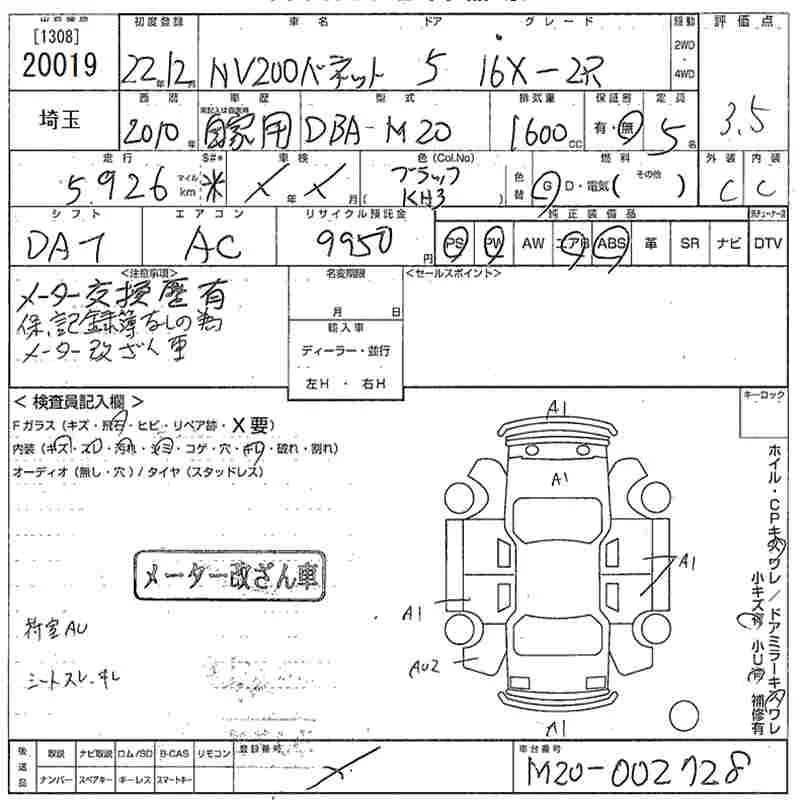 [1308]
20019
埼玉
初度登録 車名 ドア グレード 駆動 評価点
22年12月 NV200バネット 5 16X-2R 2WD・4WD
西暦 車歴 型式 排気量 保証書 定員
2010年 自家用 DBA-M20 1600cc 有・無 5名 3.5
走行 S#* 車検 色(Col.No) 色替 燃料 外装 内装
5,926 マイル km * X年X月 ブラック KH3 G D・電気( その他 ) C C
シフト エアコン リサイクル預託金 純正装備品
DAT AC 9950円 PS PW AW エアB ABS 革 SR ナビ DTV
<注意事項> 名変期限 <セールスポイント>
メーター交換歴有
保、記録簿なしの為
メーター改ざん車
月 日
輸入車
ディーラー・並行
左H・右H
<検査員記入欄> キーロック
Fガラス(キズ・飛石・ヒビ・リペア跡・X要)
内装(キズ・スレ・汚れ・シミ・コゲ・穴・キレ・破れ・割れ)
オーディオ(無し・穴)/タイヤ(スタッドレス)
A1
A1
メーター改ざん車
A1
A1
荷室AU
AU2
シートスレ・キレ
A1
ホイル・CPキズワレ/ドアミラーキズワレ
小キズ有 小U有 補修有
後送品 取説 ナビ取説 ロム/SD B-CAS リモコン 登録番号 車台番号
ナンバー スペアキー キーレス スマートキー X M20-002728